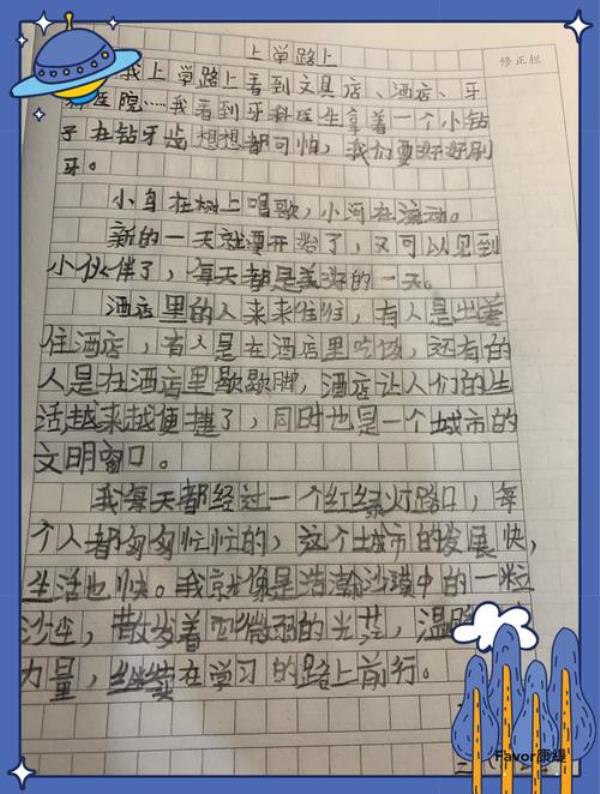 上学路上
修正栏
我上学路上看到文具店、酒店、牙
科医院……我看到牙科医生拿着一个小钻
子在钻牙齿想想都可怕，我们要好好刷
牙。
小鸟在树上唱歌，小河在流动。
新的一天就要开始了，又可以见到
小伙伴了，每天都是美好的一天。
酒店里的人来来往往，有人是出差
住酒店，有人是在酒店里吃饭，还有的
人是在酒店里歇歇脚，酒店让人们的生
活越来越便捷了，同时也是一个城市的
文明窗口。
我每天都经过一个红绿灯路口，每
个人都匆匆忙忙的，这个城市的发展快，
生活也快。我就像是浩瀚沙漠中的一粒
沙尘，散发着微弱的光芒，温
力量，继续在学习的路上前行。
Favor康缇